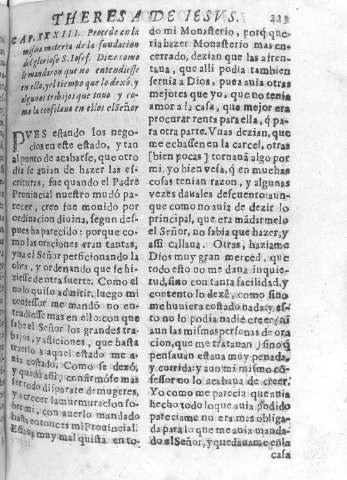 THERESA DE IESVS.
CAP. XXXIII. Procede en la
misma materia de la fundacion
del glorioso S. Iosef. Dize como
le mandaron que no entendiesse
en ella, y el tiempo que lo dexô, y
algunos trabajos que tuuo, y co-
mo la consolaua en ellos el Señor
PVES estando los nego-
cios en este estado, y tan
al punto de acabarse, que otro
dia se auian de hazer las es-
crituras, fue quando el Padre
Prouincial nuestro mudó pa-
recer, creo fue mouido por
ordinacion diuina, segun des-
pues ha parecido: porque co-
mo las oraciones eran tantas,
yua el Señor perficionando la
obra, y ordenando que se hi-
ziesse de otra suerte. Como el
no lo quiso admitir, luego mi
confessor me mandó no en-
tendiesse mas en ello: con que
sabe el Señor los grandes tra-
bajos, y afliciones, que hasta
traerlo a aquel estado me a-
uia costado. Como se dexó,
y quedó assi, confirmóse mas
ser todo disparate de mugeres,
y a crecer la murmuracion so-
bre mi, con auerlo mandado
hasta entonces mi Prouincial.
Estaua muy mal quista en to-
do mi Monasterio, porq̃ que-
ria hazer Monasterio mas en-
cerrado, dezian que las afren-
taua, que alli podia tambien
seruir a Dios, pues auia otras
mejores que yo, que no tenia
amor a la casa, que mejor era
procurar renta para ella, q̃ pa-
ra otra parte. Vnas dezian, que
me echassen en la carcel, otras
[bien pocas] tornauã algo por
mi, yo bien veia, q̃ en muchas
cosas tenian razon, y algunas
vezes dauales descuento: aun-
que como no auia de dezir lo
principal, que era mãdarmelo
el Señor, no sabia que hazer, y
assi callaua. Otras, haziame
Dios muy gran merced, que
todo esto no me daua inquie-
tud, sino con tanta facilidad, y
contento lo dexê, como sino
me huuiera costado nada, y es-
to no lo podia nadie creer, ni
aun las mismas personas de ora
cion, que me tratauan, sino q̃
pensauan estaua muy penada,
y corrida: y aun mi mismo cõ-
fessor no lo acabaua de creer.
Yo como me parecia que auia
hecho todo lo que auia podido
pareciame no era mas obliga-
da para lo que me auia manda-
do el Señor, y quedauame en la
casa